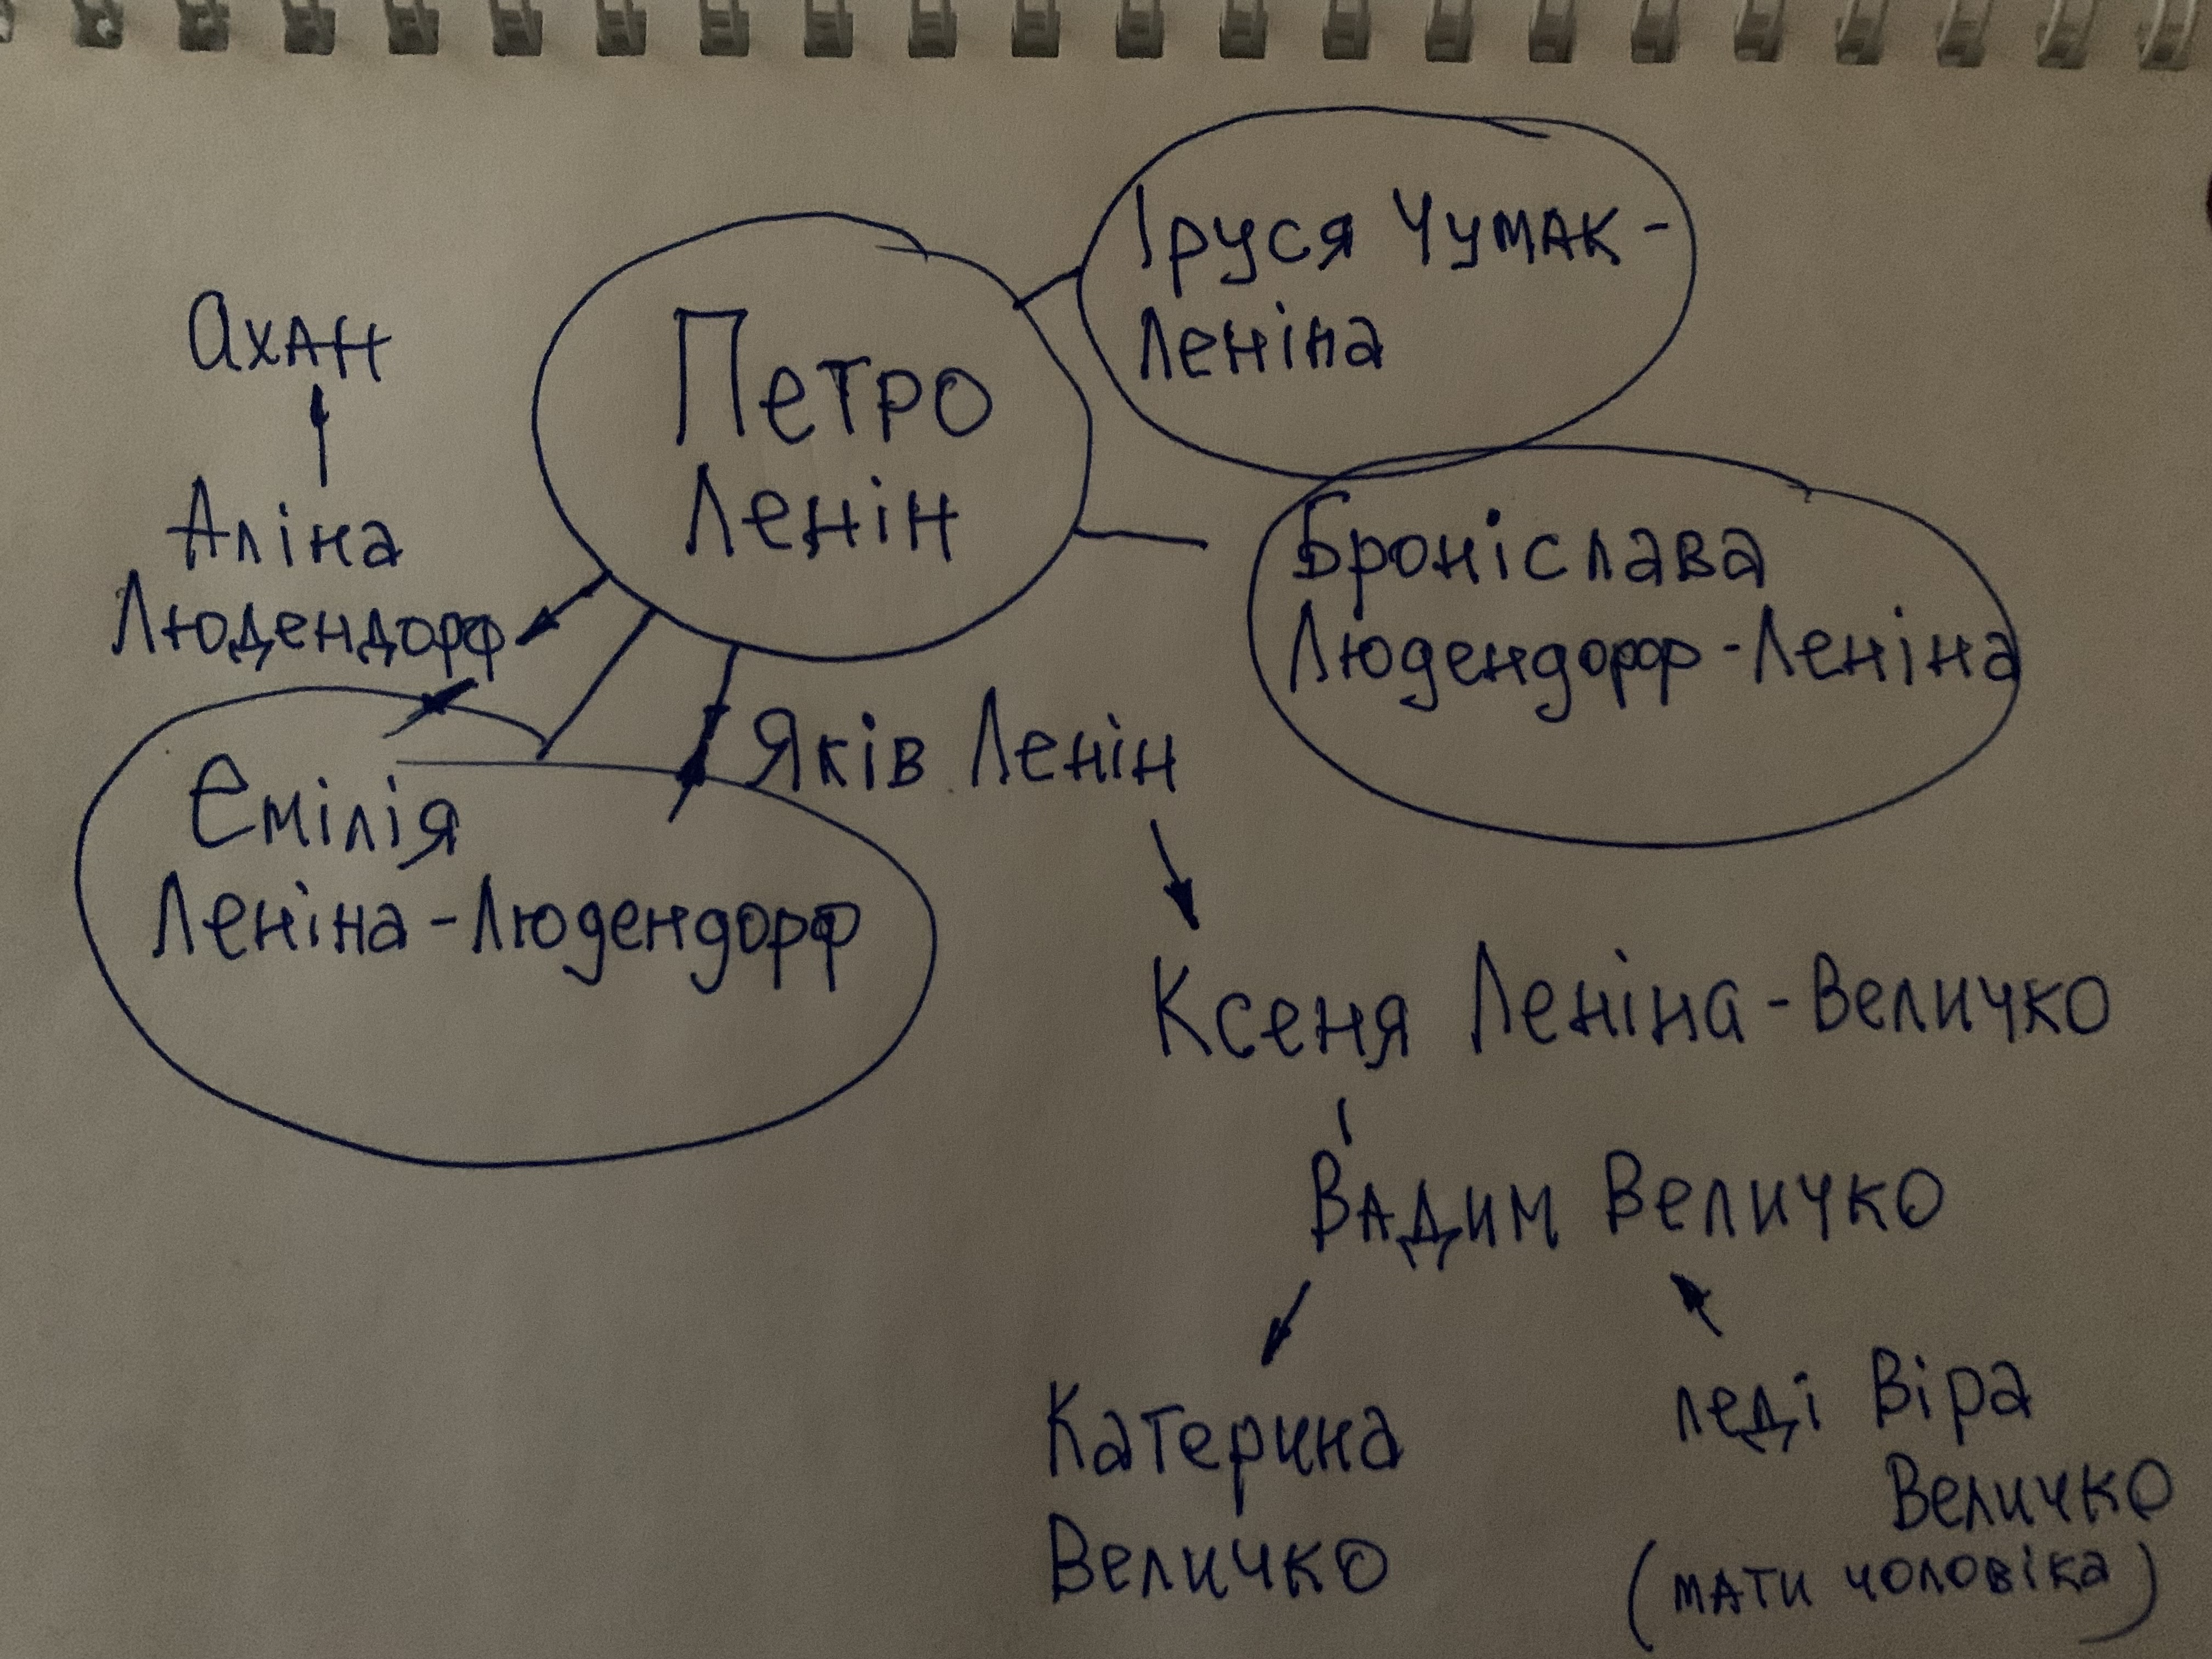 Іруся Чумак-
Леніна
Ахан
Петро
Ленін
Аліна
Людендорф
Броніслава
Людендорф-Леніна
Яків Ленін
Емілія
Леніна-Людендорф
Ксеня Леніна-Величко
Вадим Величко
Катерина
Величко
леді Віра
Величко
(мати чоловіка)